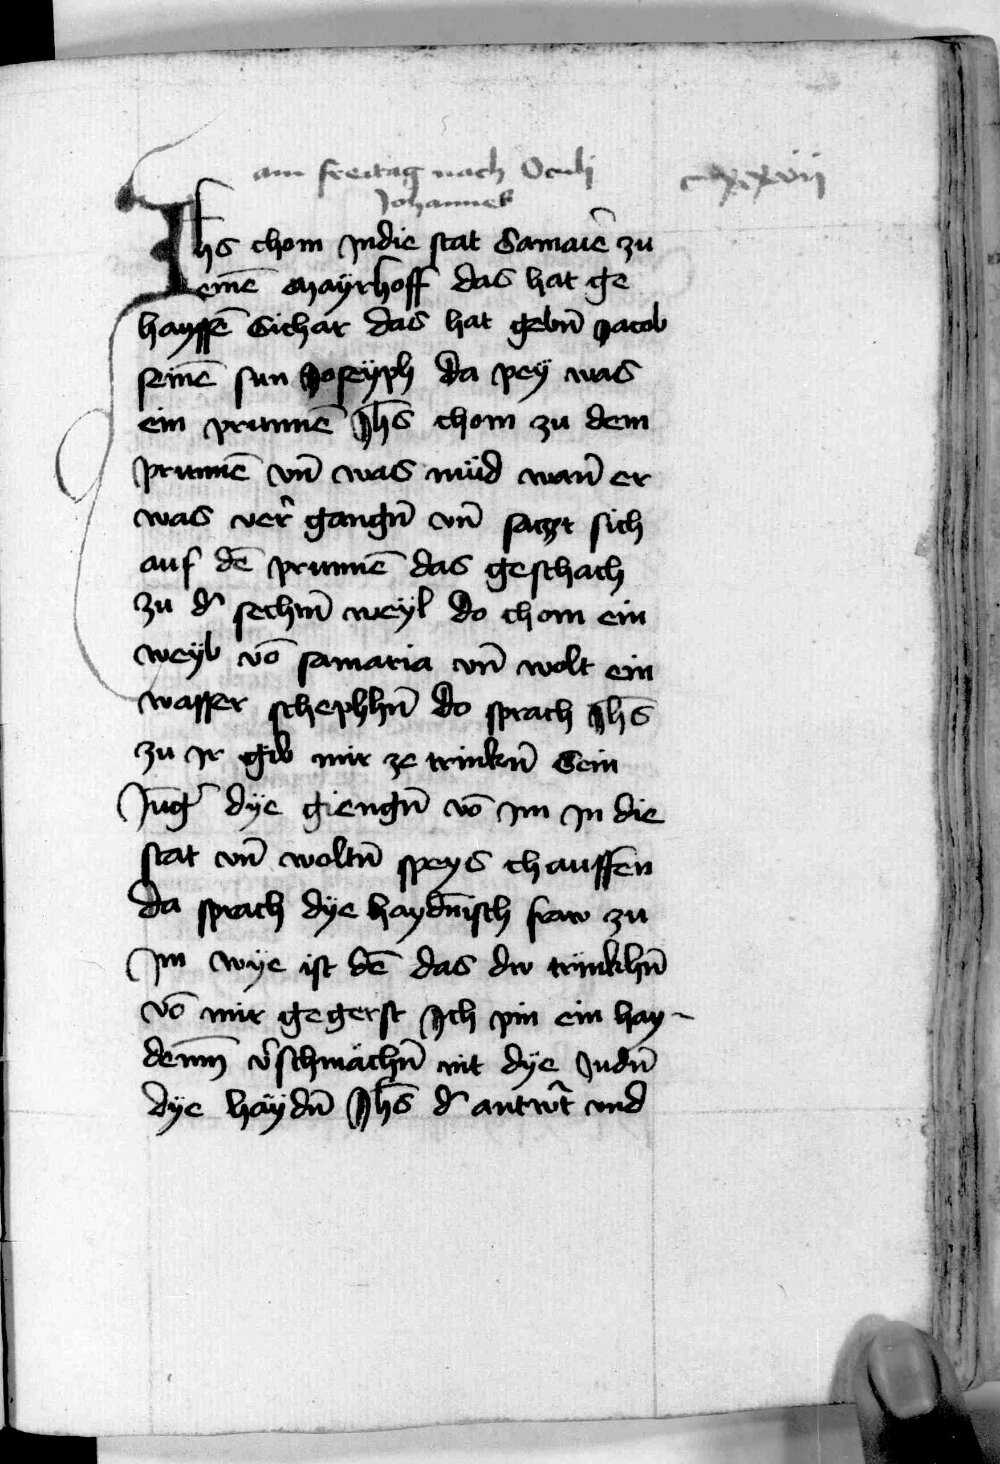 am freitag nach Oculi
cxxxvii
Johannek
Jhs chom Jndie stat Samaiē zu
einē mayrhoff das hat ge
hayssē Sichar das hat gebn̄ Jacob
seinē sun Joseÿph da peÿ was
ein prunnē Jhs̄ chom zu dem
prunnē vn̄ was müd wan̄ er
was ver̄ gangn̄ vn̄ saczt sich
auf dē prunnē das geschach
zu d' sechtn̄ weÿl do chom ein
weÿb vō samaria vn̄ wolt ein
wasser schephhn̄ do sprach Jhs̄
zu Jr gib mir ze trinkn̄ Sein
Jūg' dÿe giengn̄ vō Jm Jn die
stat vn̄ woltn̄ speÿs chauffen
da sprach dÿe haydn̄isch fraw zu
Jm wÿe ist dē das dw trinkhn̄
vō mir gegerst Jch pin ein hay-
denn̄ v'schmächn̄ nit dÿe Judn̄
dÿe haÿdn̄ Jhs̄ d' antw't vnd